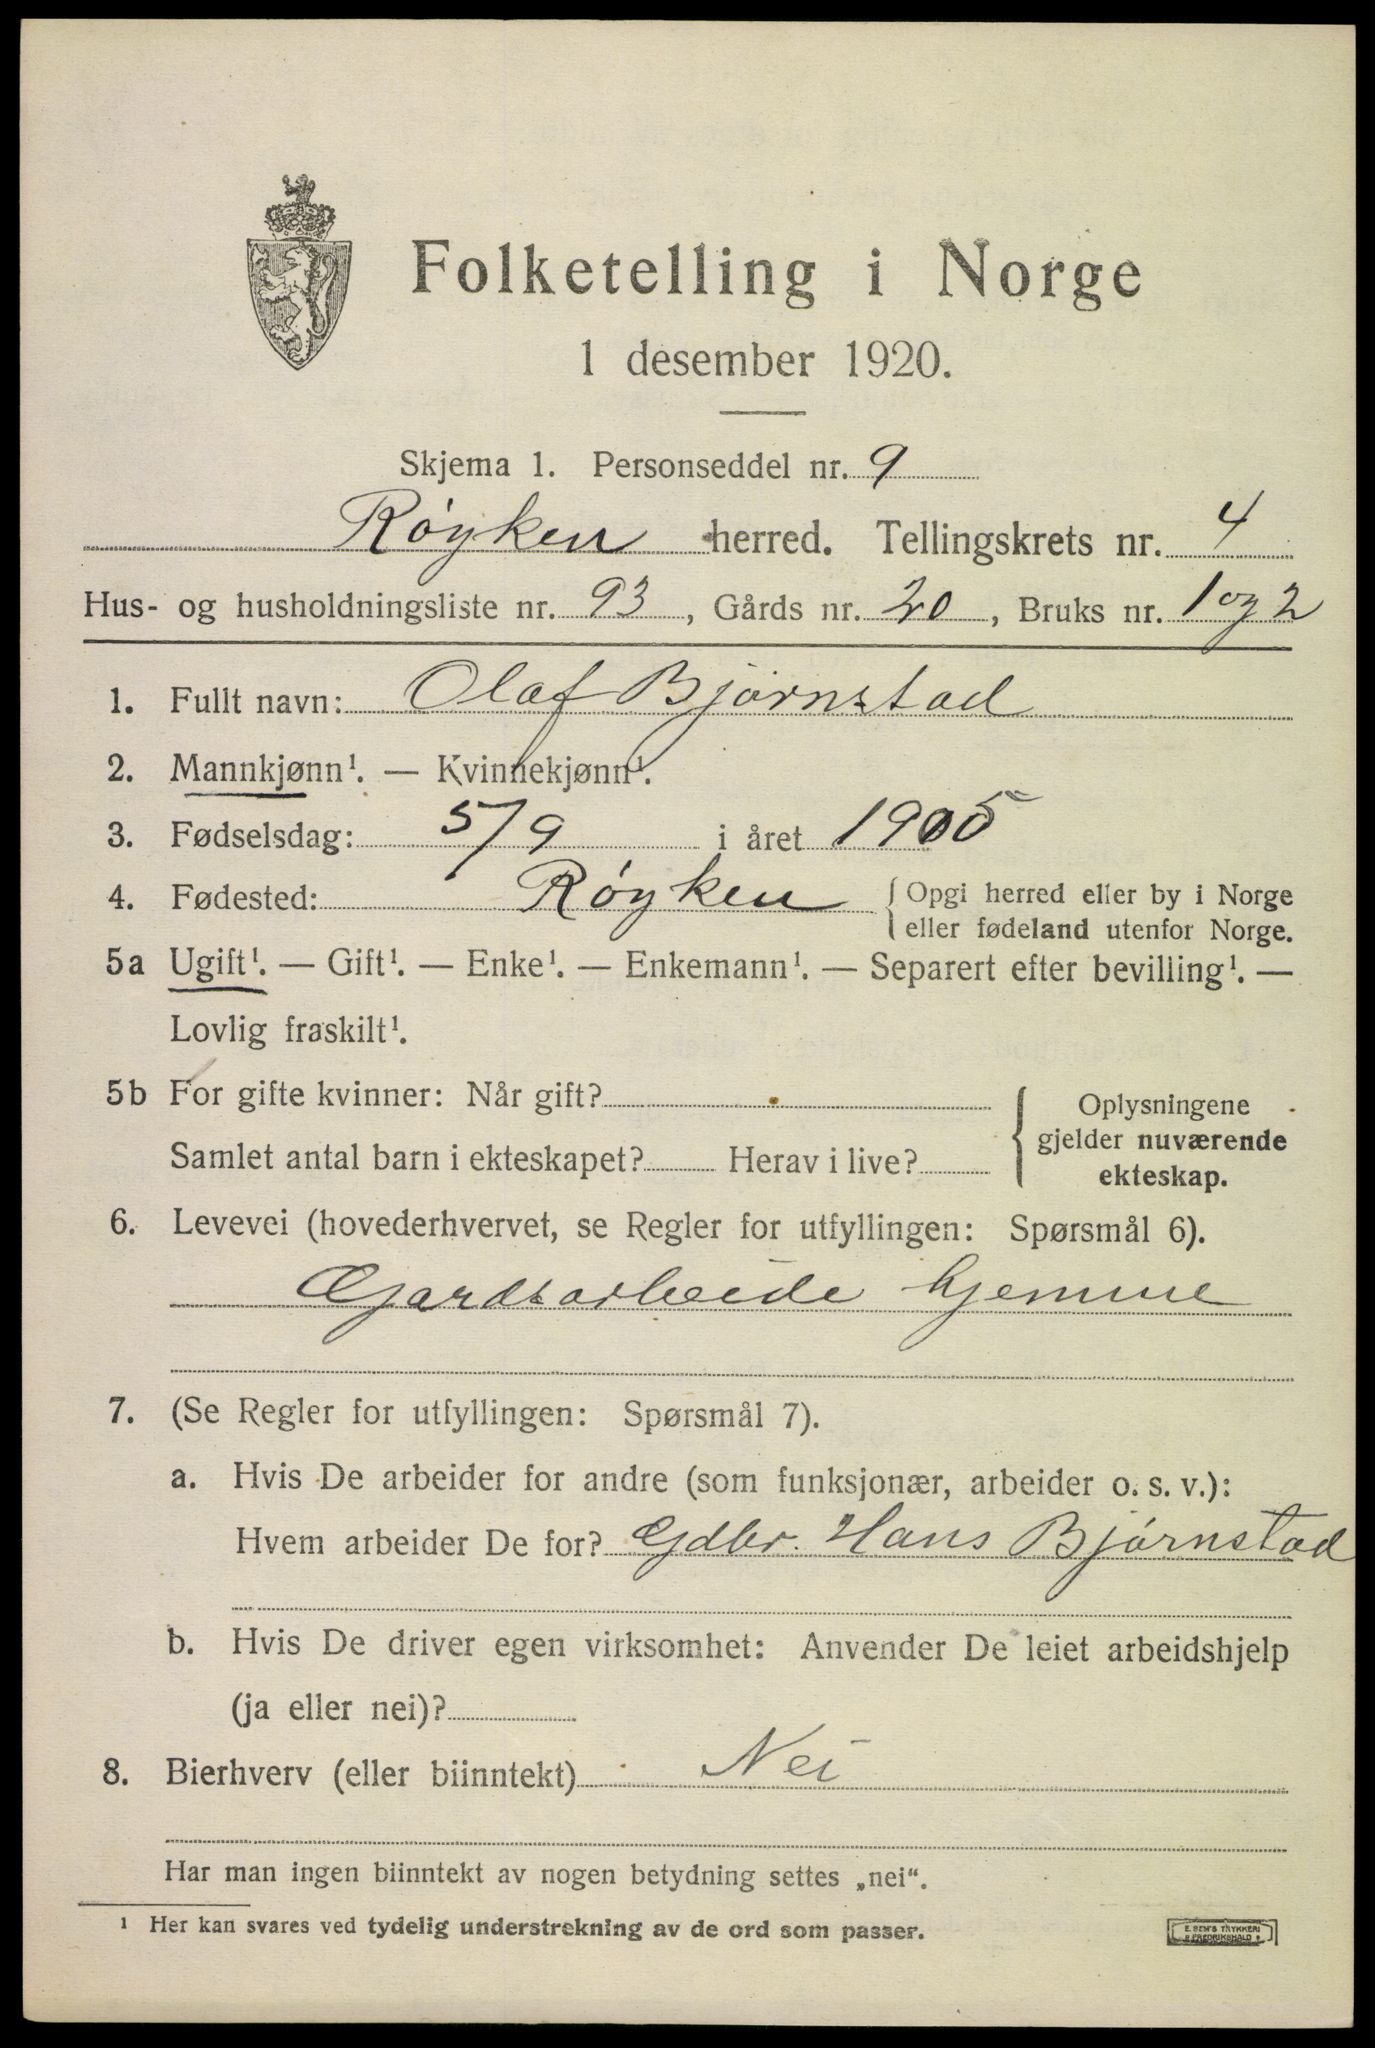 Folketelling i Norge
1 desember 1920.
Skjema 1. Personseddel nr. 9
Røyken herred. Tellingskrets nr. 4
Hus- og husholdningsliste nr. 93, Gårds nr. 20, Bruks nr. 1 og 2
1. Fullt navn: Olaf Bjørnstad
2. Mannkjønn¹. — Kvinnekjønn¹.
3. Fødselsdag: 5/9 i året 1905
4. Fødested: Røyken { Opgi herred eller by i Norge
eller fødeland utenfor Norge.
5a Ugift¹. — Gift¹. — Enke¹. — Enkemann¹. — Separert efter bevilling¹. —
Lovlig fraskilt¹.
5b For gifte kvinner: Når gift?
Samlet antal barn i ekteskapet? Herav i live?
{ Oplysningene
gjelder nuværende
ekteskap.
6. Levevei (hovederhvervet, se Regler for utfyllingen: Spørsmål 6).
Gjardsarbeide hjemme
7. (Se Regler for utfyllingen: Spørsmål 7).
a. Hvis De arbeider for andre (som funksjonær, arbeider o. s. v.):
Hvem arbeider De for? Gdbr. Hans Bjørnstad
b. Hvis De driver egen virksomhet: Anvender De leiet arbeidshjelp
(ja eller nei)?
8. Bierhverv (eller biinntekt) Nei
Har man ingen biinntekt av nogen betydning settes „nei“.
¹ Her kan svares ved tydelig understrekning av de ord som passer.
E. SEM'S TRYKKERI
FREDRIKSHALD